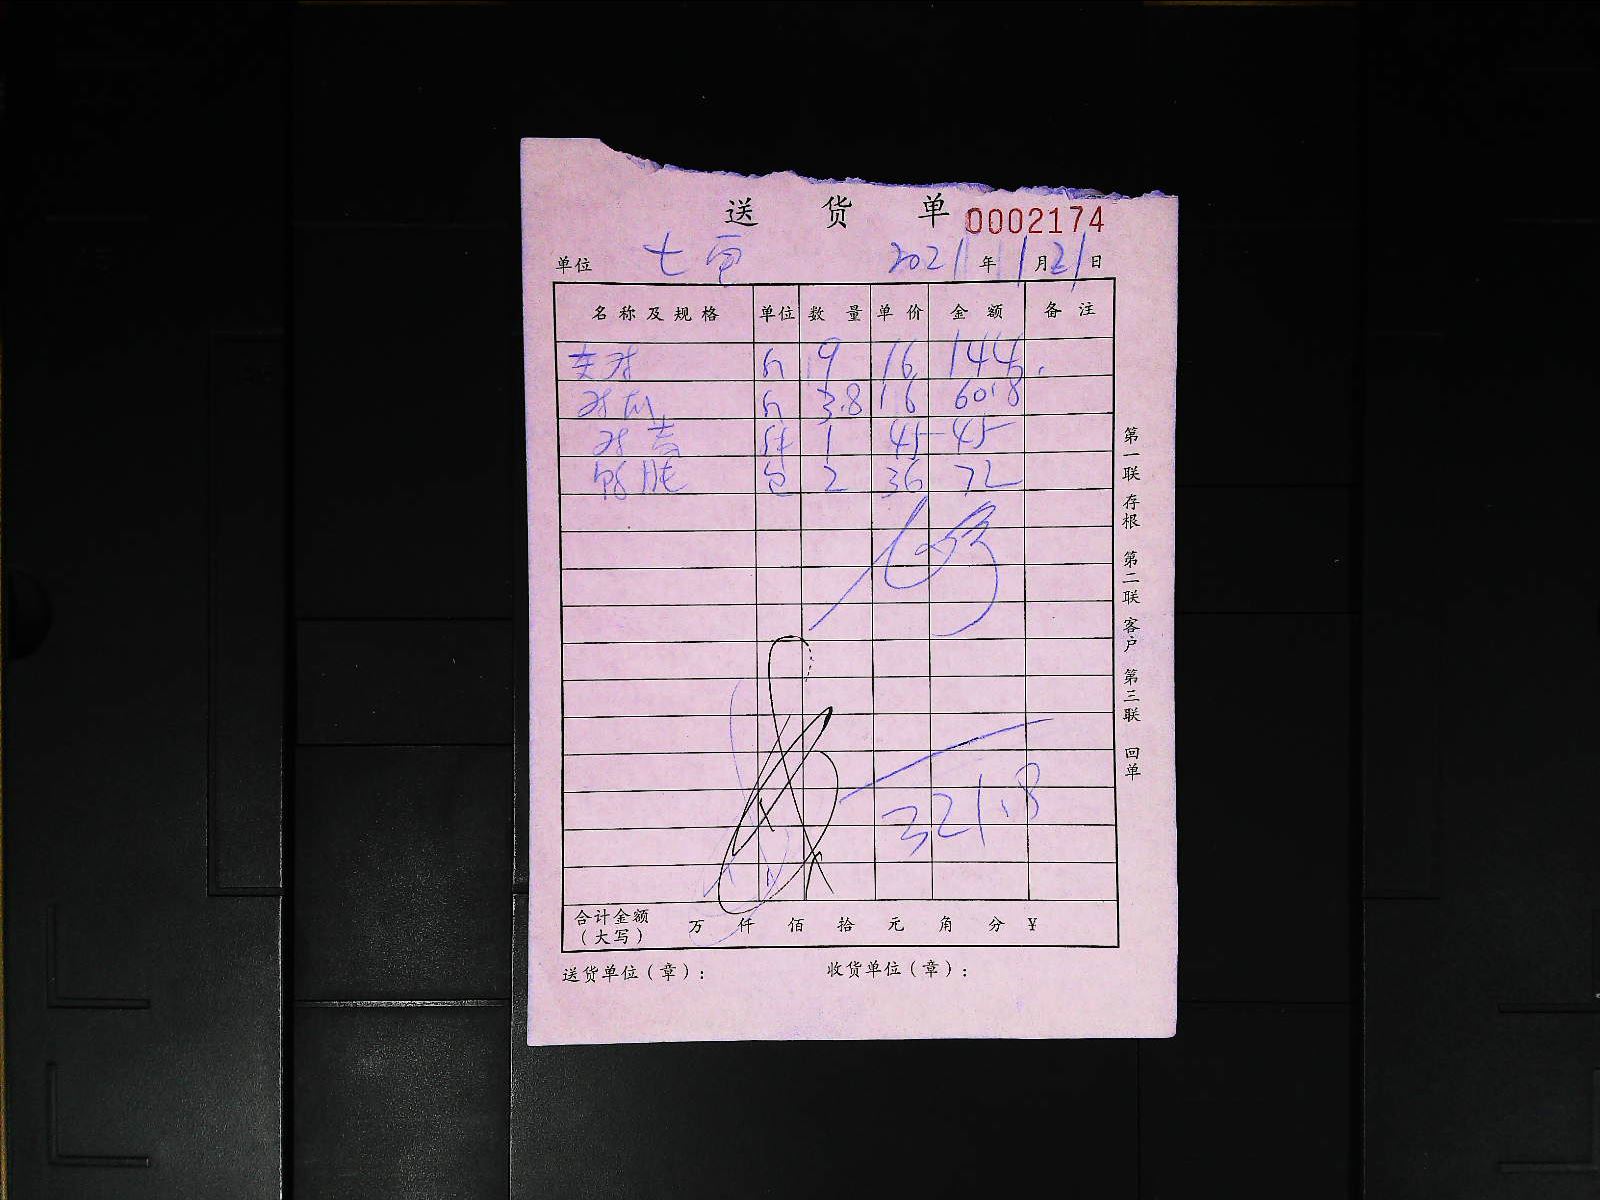 送 货 单 0002174
单位 七 2021 年 1 月 21 日
名称及规格 单位 数量 单价 金额 备注
斤 9 16 144
斤 3.8 16 60.8
件 1 45 45
包 2 36 72
321.8
合计金额（大写） 万 仟 佰 拾 元 角 分 ¥
送货单位（章）： 收货单位（章）：
第一联 存根 第二联 客户 第三联 回单